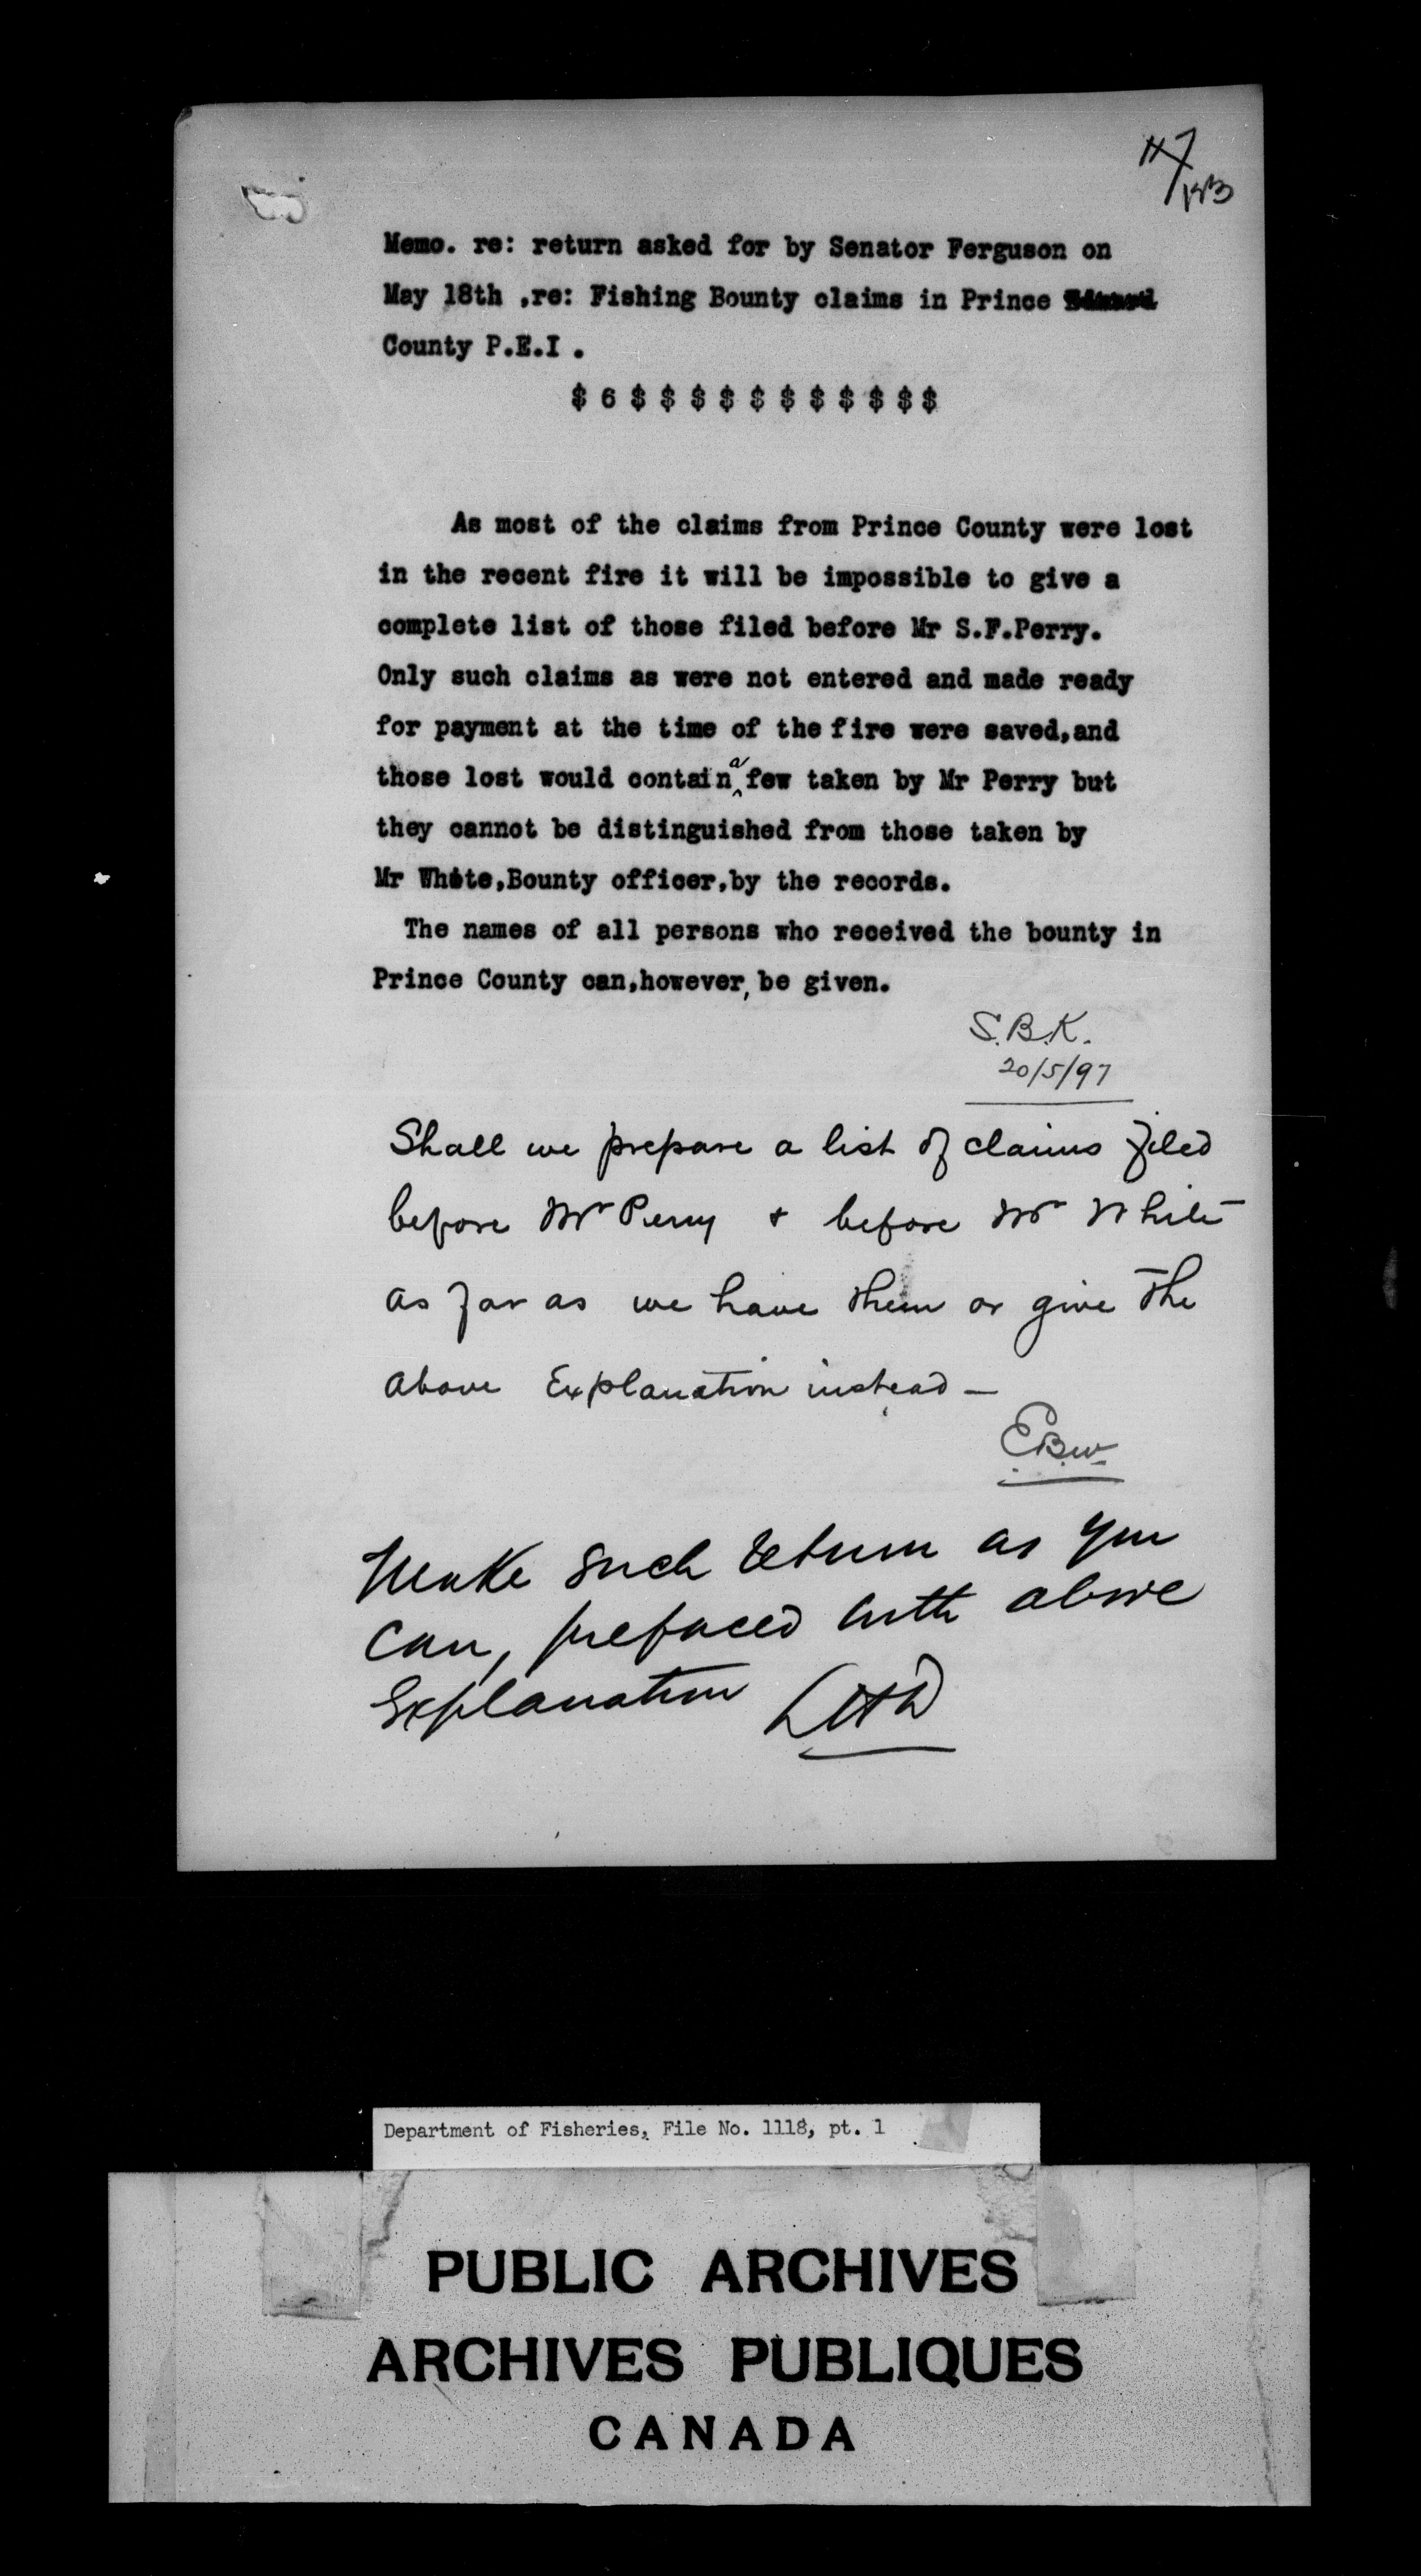 117
Memo. re: return asked for by Senator Ferguson on
May 18th ,re: Fishing Bounty claims in Prince Edward
County P.E.I .
$ 6 $ $ $ $ $ $ $ $ $ $ $
As most of the claims from Prince County were lost
in the recent fire it will be impossible to give a
complete list of those filed before Mr S.F.Perry.
Only such claims as were not entered and made ready
for payment at the time of the fire were saved,and
those lost would contain a few taken by Mr Perry but
they cannot be distinguished from those taken by
Mr White,Bounty officer,by the records.
The names of all persons who received the bounty in
Prince County can,however, be given.
S.B.K.
20/5/97
Shall we prepare a list of claims filed
before Mr Perry & before Mr White
as far as we have them or give the
above Explanation instead —
E.B.W.
Make such return as you
can, prefaced with above
Explanation LHD
Department of Fisheries, File No. 1118, pt. 1
PUBLIC ARCHIVES
ARCHIVES PUBLIQUES
CANADA